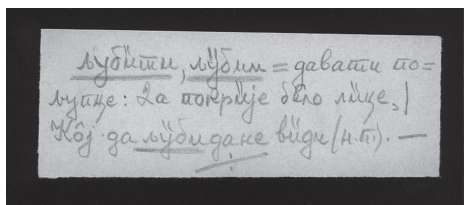 љубӥти, љӱбим = давати по=
љупце: Да покрӥје бѐло лӥце, /
Кôј да љӱби да не вӥди (н.п.). —